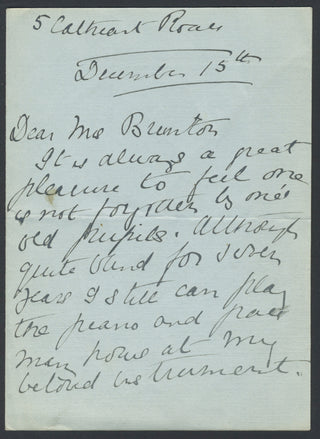 5 Cathcart Road
December 15th
Dear Mrs Brunton
It is always a great
pleasure to feel one
is not forgotten by one's
old pupils. Although
quite blind for seven
years I still can play
the piano and pass
many hours at my
beloved instrument.